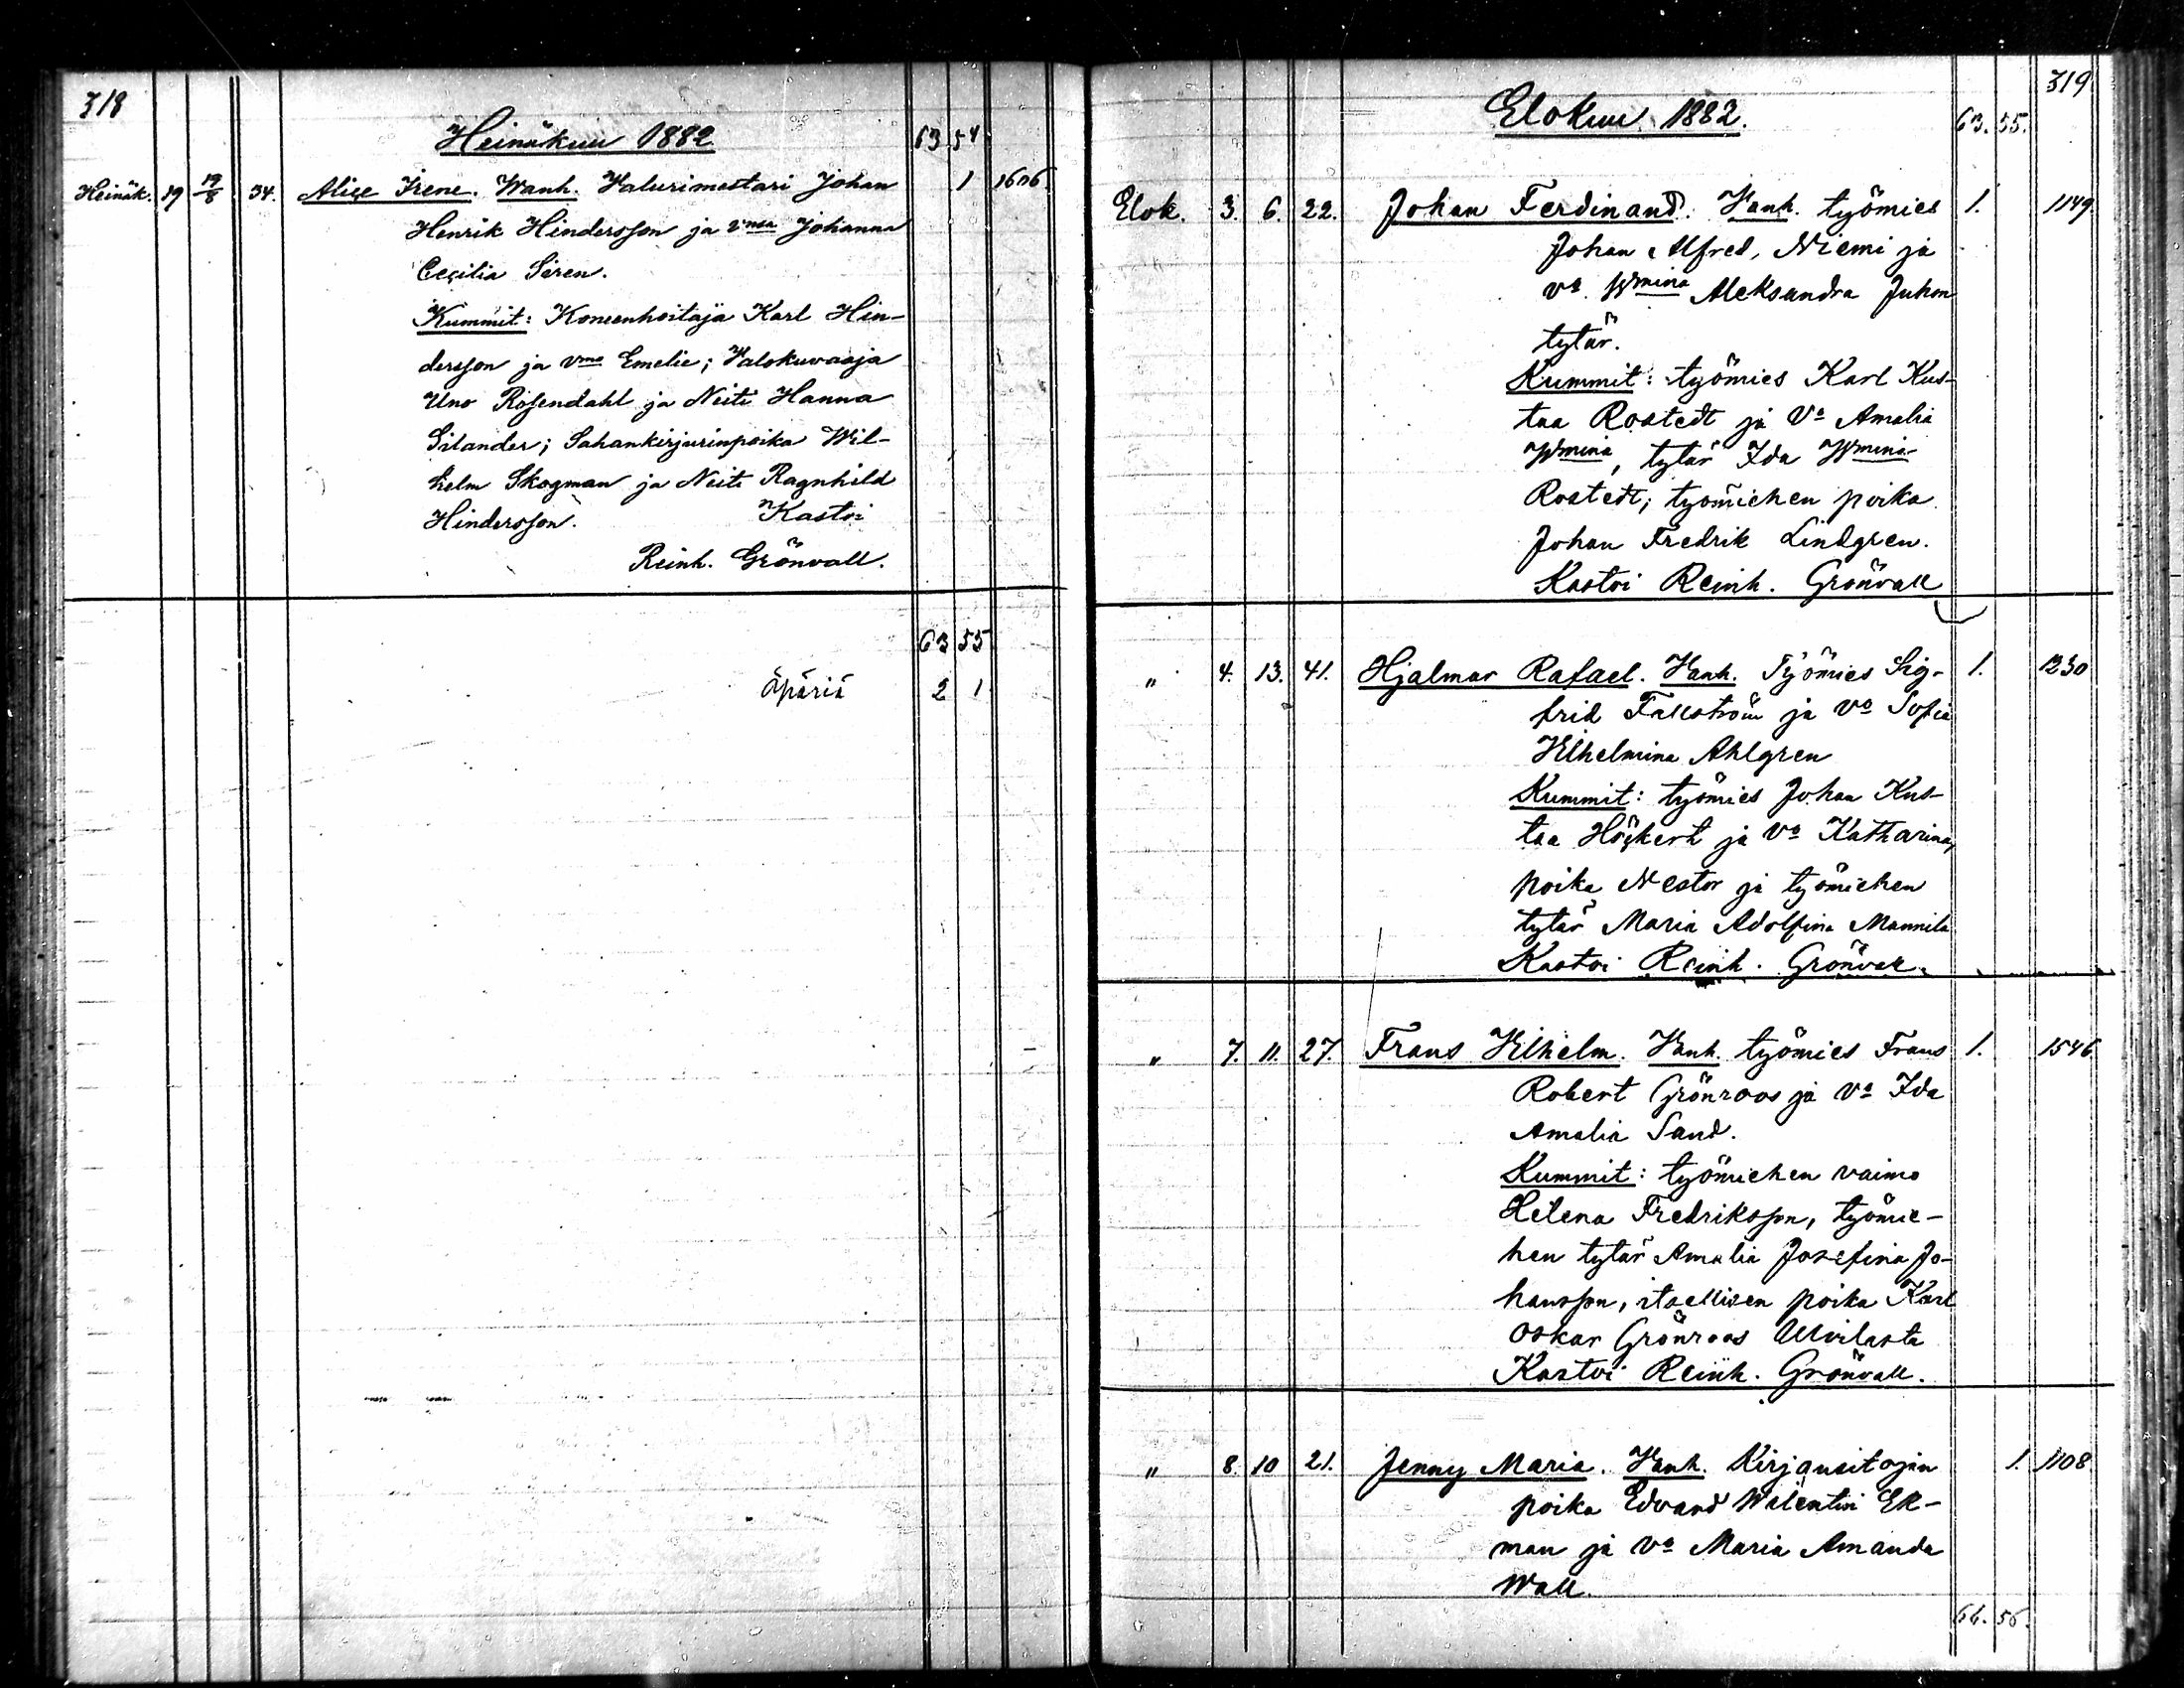 318
Heinäkuu 1882. 63 54
Heinäk. 19 19/8 34. Alice Irene. Wanh. Valurimestari Johan 1 1606.
Henrik Hindersson ja vmsa Johanna
Cecilia Siren.
Kummit: Koneenhoitaja Karl Hin-
dersson ja vmo Emelie; Valokuvaaja
Uno Rosendahl ja Neiti Hanna
Silander; Sahankirjurinpoika Wil-
helm Skogman ja Neiti Ragnhild
Hindersson. Kastoi
Reinh. Grönvall.
63 55
Äpäriä 2 1
319
Elokuu 1882. 63. 55.
Elok. 3. 6. 22. Johan Ferdinand. Vanh. työmies 1. 1149
Johan Alfred, Niemi ja
va. Wmina Aleksandra Juhon
tytär.
Kummit: työmies Karl Kus-
taa Rostedt ja Va Amalia
Wmina, tytär Ida Wmina
Rostedt; työmiehen poika
Johan Fredrik Lindgren.
Kastoi Reinh. Grönvall
" 4. 13. 41. Hjalmar Rafael. Vanh. Työmies Sig- 1. 1230
frid Fallström ja Va Sofia
Vilhelmina Ahlgren
Kummit: työmies Johan Kus-
taa Höckert ja Va Katharina,
poika Nestor ja työmiehen
tytär Maria Adolfina Mannila
Kastoi Reinh. Grönvall.
" 7. 11. 27. Frans Vilhelm. Vanh. työmies Frans 1. 1546
Robert Grönroos ja Va Ida
Amalia Sand.
Kummit: työmiehen vaimo
Helena Fredriksson, työmie-
hen tytär Amalia Josefina Jo-
hansson, itsellisen poika Karl
Oskar Grönroos Ulvilasta
Kastoi Reinh. Grönvall.
" 8. 10 21. Jenny Maria. Vanh. Kirjansitojan 1. 1108
poika Edvard Walentin Ek-
man ja Va Maria Amanda
Wall.
66. 56.